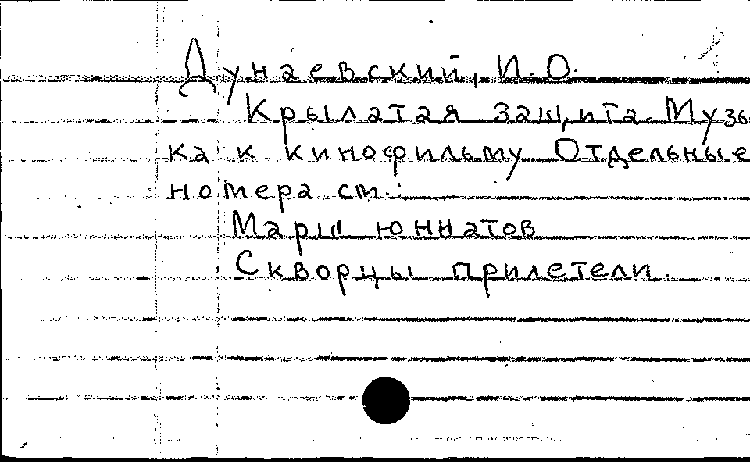 Дунаевский, И. О.
Крылатая защита. Музы
ка к кинофильму Отдельные
номера см.:
Марш юннатов
Скворцы прилетели.